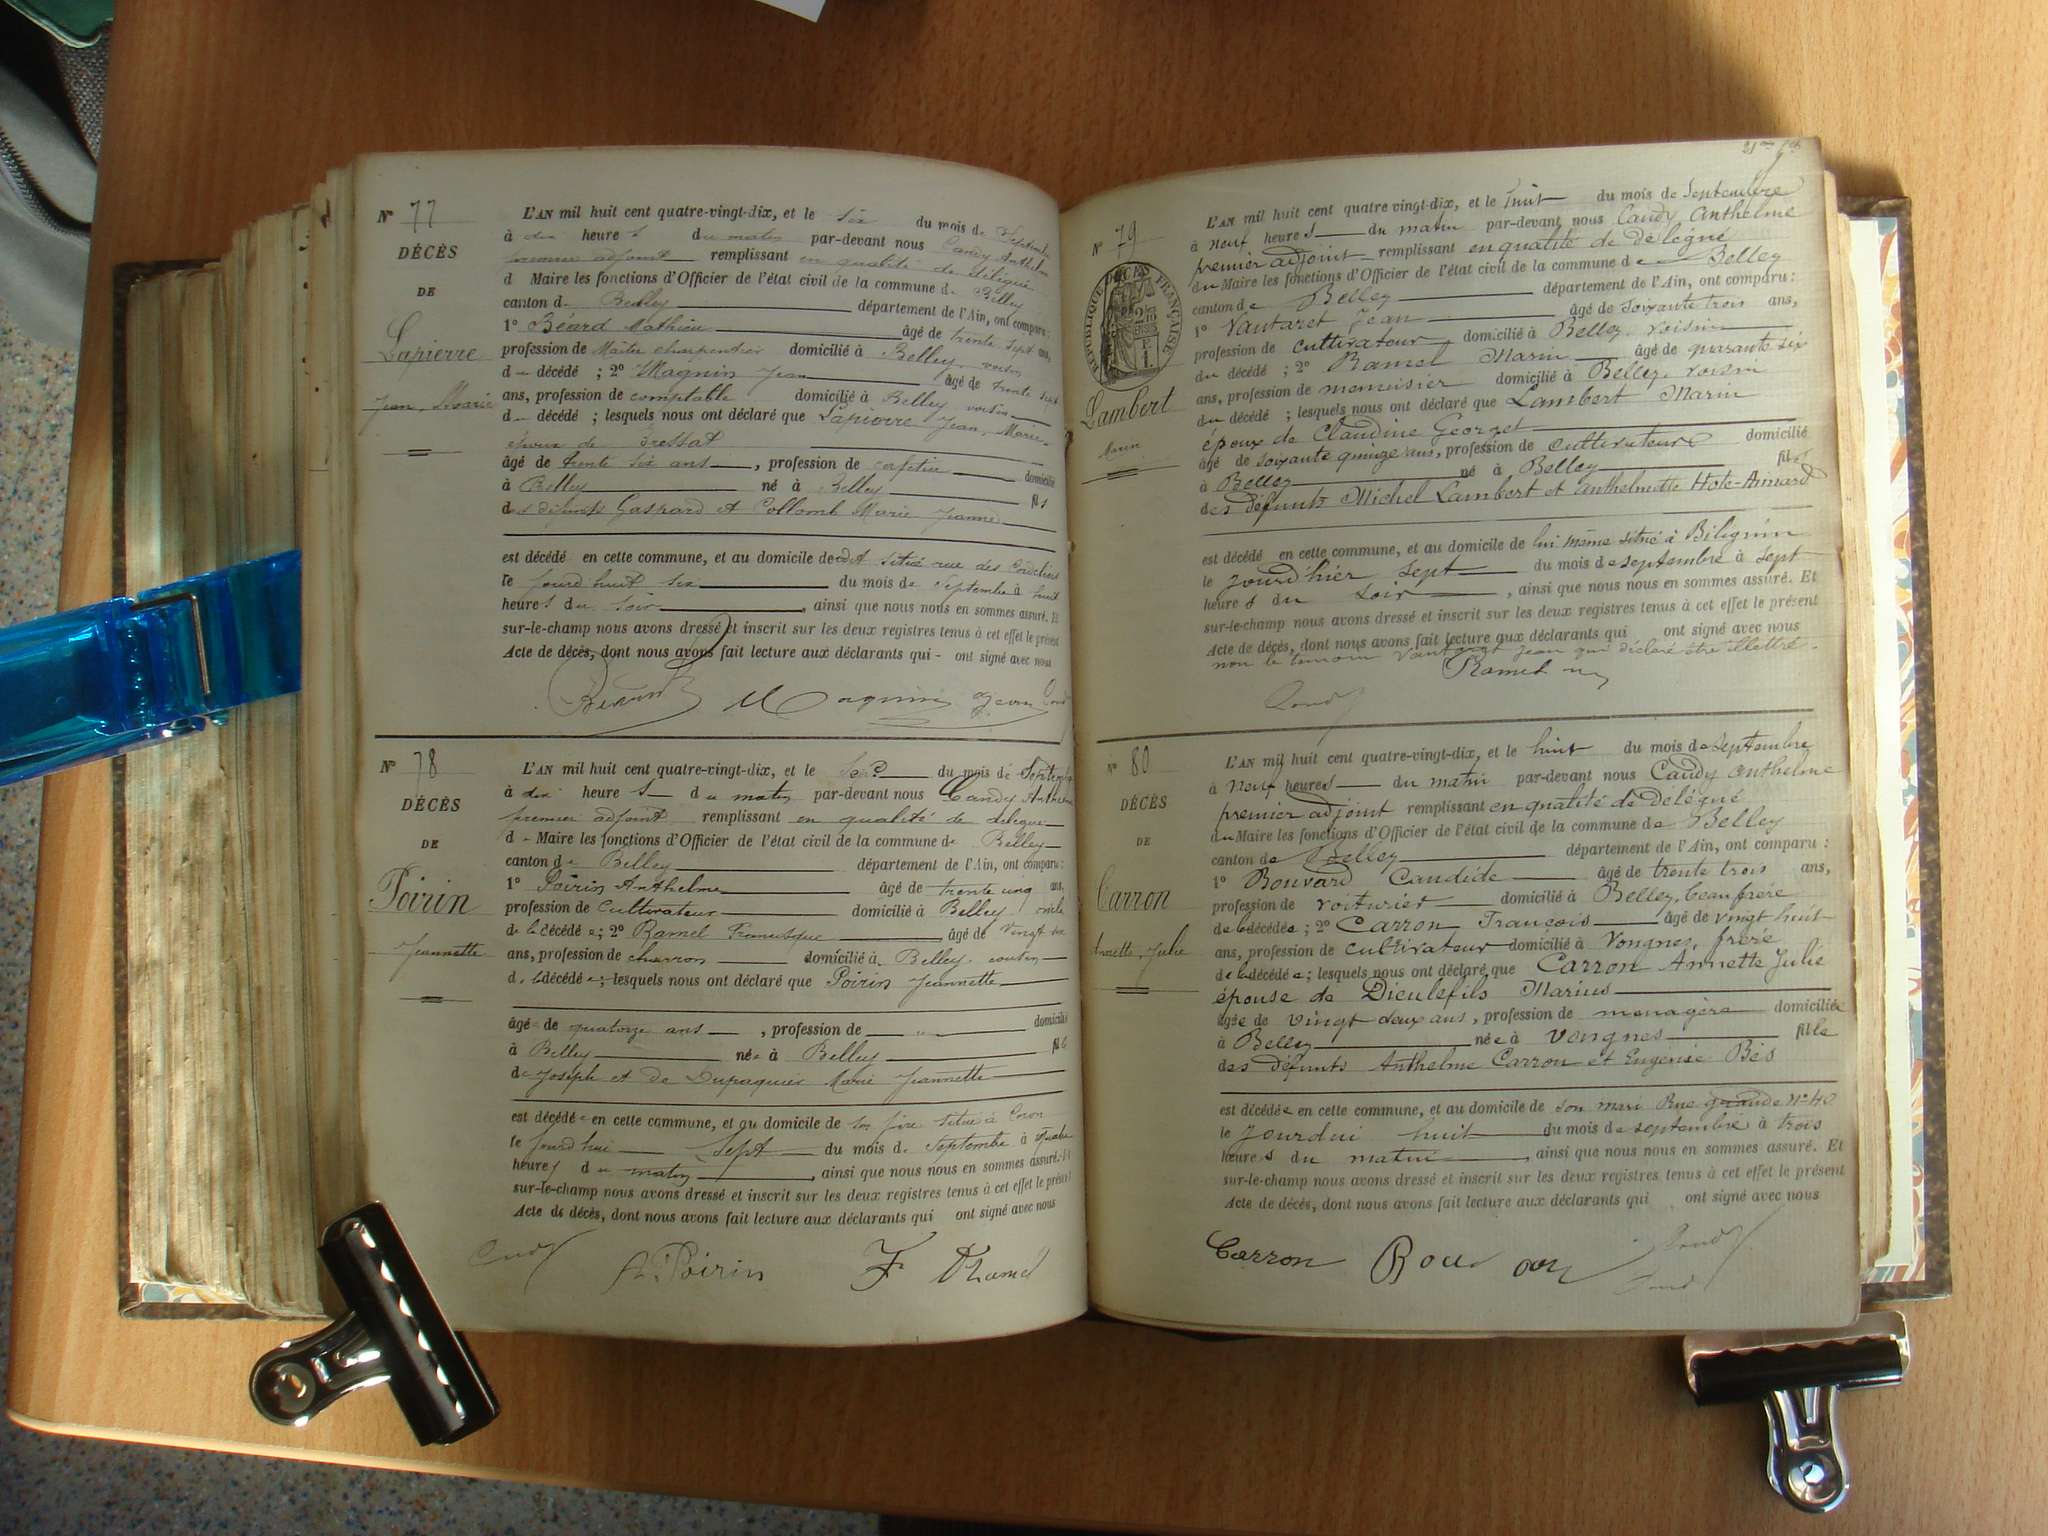 Nº 77
DÉCÈS
DE
Lapierre
Jean, Marie
L'AN mil huit cent quatre-vingt-dix, et le six du mois de Septembre
à dix heures du matin par-devant nous Candy Anthelme
premier adjoint remplissant en qualité de délégué
d Maire les fonctions d'Officier de l'état civil de la commune de Belley
canton de Belley département de l'Ain, ont comparu :
1º Béard Mathieu âgé de trente sept ans,
profession de Maître charpentier domicilié à Belley, voisin
du décédé ; 2º Magnin Jean âgé de trente sept
ans, profession de comptable domicilié à Belley voisin
du décédé ; lesquels nous ont déclaré que Lapierre Jean, Marie
époux de Tressat
âgé de trente six ans, profession de cafetier domicilié
à Belley né à Belley fils
des défunts Gaspard et Collomb Marie Jeanne
est décédé en cette commune, et au domicile de situé rue des Cordeliers
le jourd'huit six du mois de Septembre à huit
heures du soir, ainsi que nous nous en sommes assuré. Et
sur-le-champ nous avons dressé et inscrit sur les deux registres tenus à cet effet le présent
Acte de décès, dont nous avons fait lecture aux déclarants qui - ont signé avec nous
Magnin Jean
Nº 78
DÉCÈS
DE
Poirin
Jeannette
L'AN mil huit cent quatre-vingt-dix, et le Sept du mois de Septembre
à dix heures du matin par-devant nous Candy Anthelme
premier adjoint remplissant en qualité de délégué
d Maire les fonctions d'Officier de l'état civil de la commune de Belley
canton de Belley département de l'Ain, ont comparu :
1º Poirin Anthelme âgé de trente cinq ans,
profession de Cultivateur domicilié à Belley oncle
de la décédée ; 2º Ramel Francisque âgé de Vingt six
ans, profession de charron domicilié à Belley, cousin
de la décédée ; lesquels nous ont déclaré que Poirin Jeannette
âgée de quatorze ans, profession de " domicilié
à Belley née à Belley fille
de Joseph et de Dupaquier Marie Jeannette
est décédée en cette commune, et au domicile de son père situé à Coron
le jourd'hui Sept du mois de Septembre à quatre
heures du matin, ainsi que nous nous en sommes assuré. Et
sur-le-champ nous avons dressé et inscrit sur les deux registres tenus à cet effet le présent
Acte de décès, dont nous avons fait lecture aux déclarants qui ont signé avec nous
Candy A. Poirin F Ramel
Nº 79
RÉPUBLIQUE FRANÇAISE
Lambert
Marin
L'AN mil huit cent quatre-vingt-dix, et le huit du mois de Septembre
à neuf heures du matin par-devant nous Candy Anthelme
premier adjoint remplissant en qualité de délégué
du Maire les fonctions d'Officier de l'état civil de la commune de Belley
canton de Belley département de l'Ain, ont comparu :
1º Vautaret Jean âgé de soixante trois ans,
profession de cultivateur domicilié à Belley, voisin
du décédé ; 2º Ramel Marin âgé de quarante six
ans, profession de menuisier domicilié à Belley, voisin
du décédé ; lesquels nous ont déclaré que Lambert Marin
époux de Claudine Georget
âgé de soixante quinze ans, profession de cultivateur domicilié
à Belley né à Belley fils
des défunts Michel Lambert et Anthelmette Hote-Aimard
est décédé en cette commune, et au domicile de lui même situé à Bilignin
le jourd'hier sept du mois de septembre à sept
heures du soir, ainsi que nous nous en sommes assuré. Et
sur-le-champ nous avons dressé et inscrit sur les deux registres tenus à cet effet le présent
Acte de décès, dont nous avons fait lecture aux déclarants qui ont signé avec nous
non le témoin Vautaret Jean qui déclaré être illettré.
Ramel
Candy
Nº 80
DÉCÈS
DE
Carron
Annette, Julie
L'AN mil huit cent quatre-vingt-dix, et le huit du mois de septembre
à neuf heures du matin par-devant nous Candy Anthelme
premier adjoint remplissant en qualité de délégué
du Maire les fonctions d'Officier de l'état civil de la commune de Belley
canton de Belley département de l'Ain, ont comparu :
1º Bouvard Candide âgé de trente trois ans,
profession de voiturier domicilié à Belley, beau frère
de la décédée ; 2º Carron François âgé de vingt huit
ans, profession de cultivateur domicilié à Vongnes, frère
de la décédée ; lesquels nous ont déclaré que Carron Annette Julie
épouse de Dieulefils Marius
âgée de vingt deux ans, profession de menagère domiciliée
à Belley née à Vongnes fille
des défunts Anthelme Carron et Eugenie Bès
est décédée en cette commune, et au domicile de son mari Rue grande Nº 40
le jourdui huit du mois de septembre à trois
heures du matin, ainsi que nous nous en sommes assuré. Et
sur-le-champ nous avons dressé et inscrit sur les deux registres tenus à cet effet le présent
Acte de décès, dont nous avons fait lecture aux déclarants qui ont signé avec nous
Carron Candy